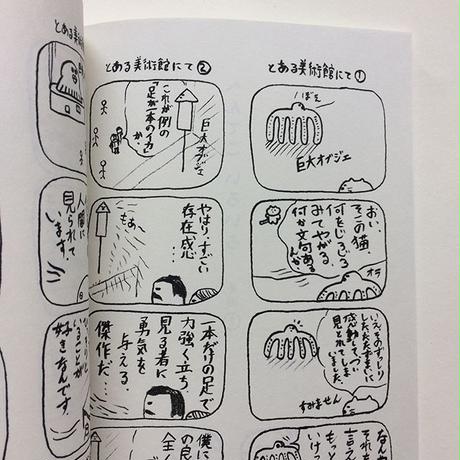 とある美術館にて①
ばぇ
巨大オブジェ
おい、
そこの猫。
何をじろじろ
みてやがる。
何か文句ある
んか
オラ
いえ、そのずっしり
とした
感動してつい
見とれてしまいました。
すみません
なんや
それを
言え
もっと
いけっ
とある美術館にて②
これが例の
「足が一本のイカ」
か…
巨大オブジェ
やはり、すごい
存在感…
もあ〜
一本だけの足で
力強く立ち、
見る者に
勇気を
与える。
傑作だ…
僕に
の良
全く
とある美術館にて
人間に
見られて
います。
いる
ことが
好きなんです